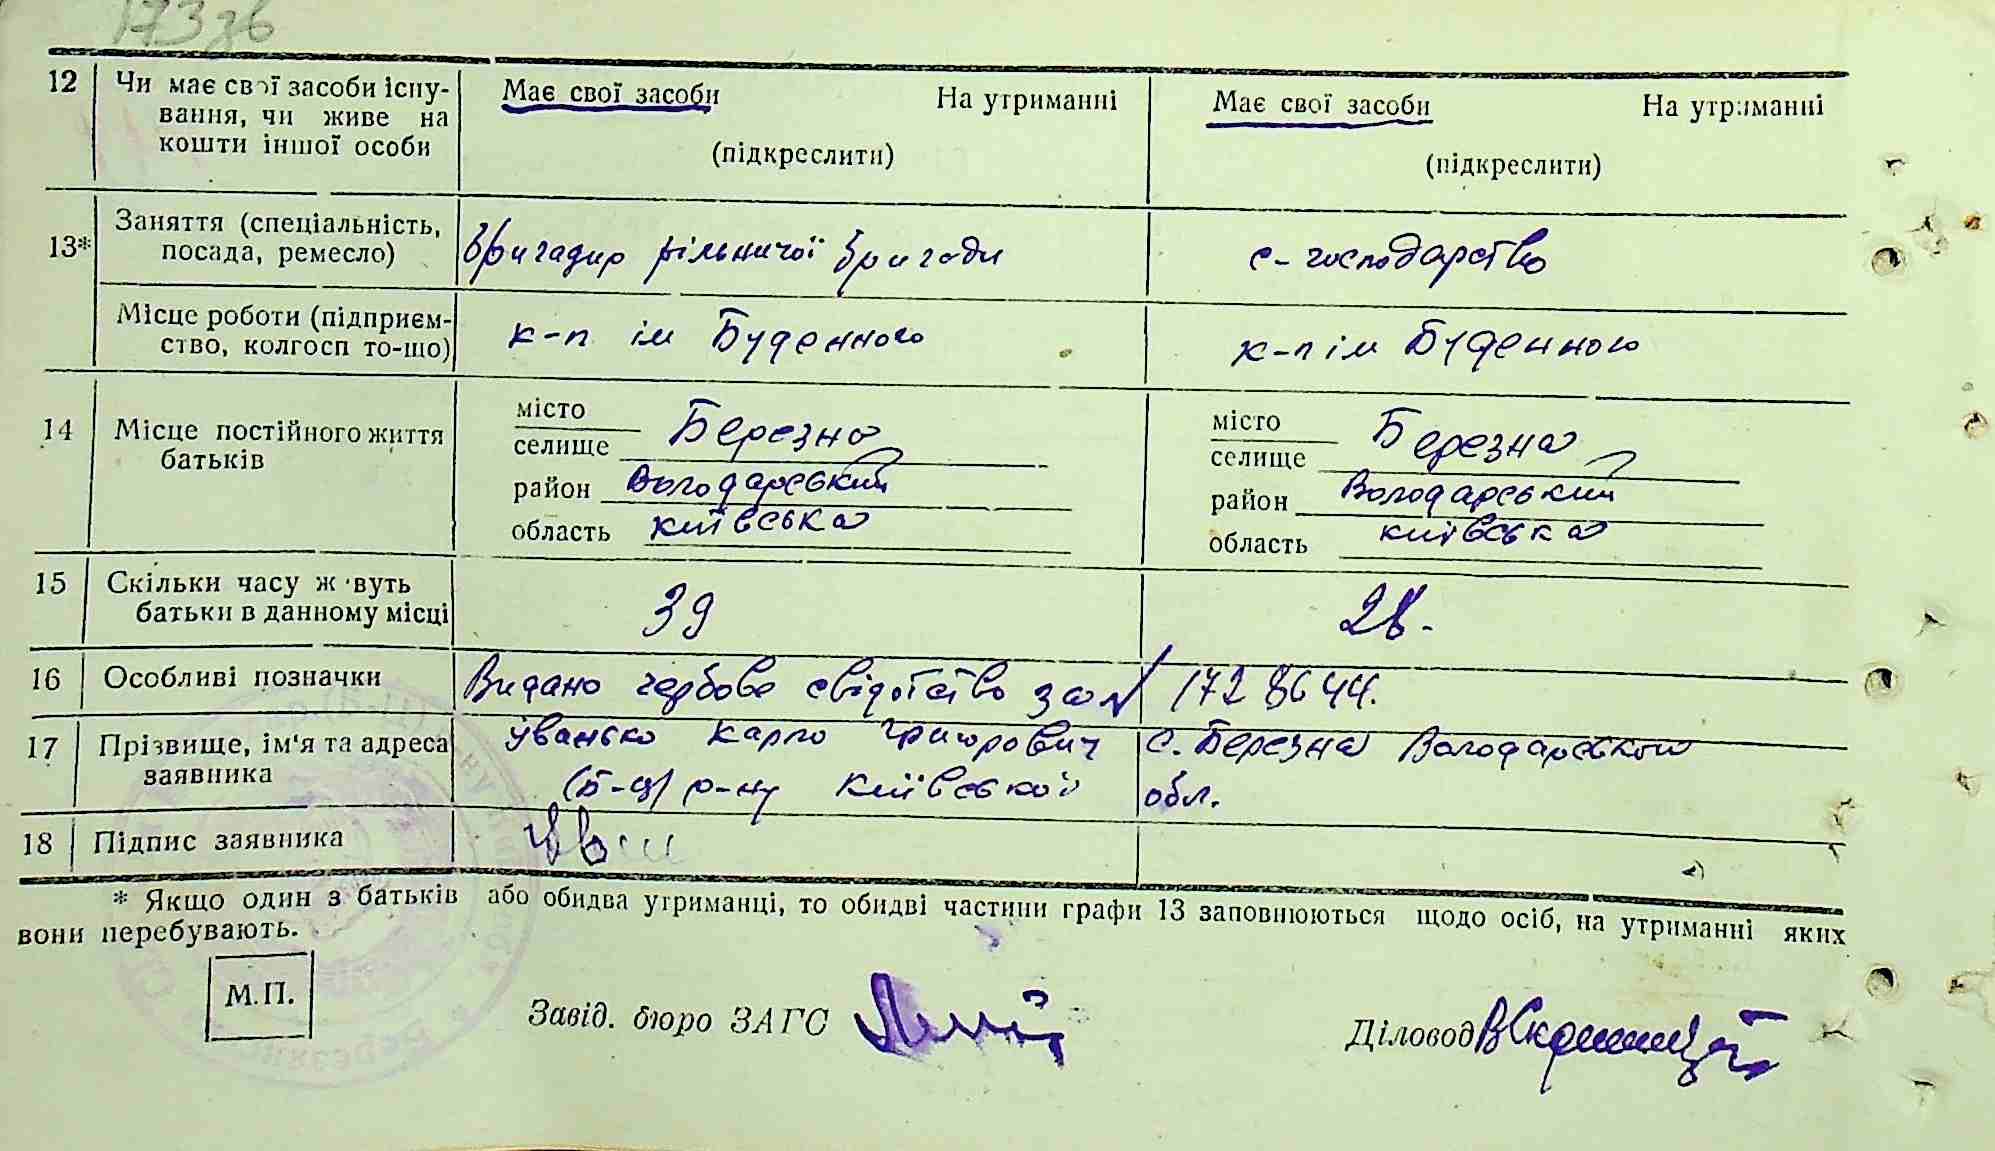 173зв
12 Чи має свої засоби існу- Має свої засоби На утриманні Має свої засоби На утриманні
вання, чи живе на
кошти іншої особи (підкреслити) (підкреслити)
13* Заняття (спеціальність,
посада, ремесло) Бригадир рільничої бригади с-господарство
Місце роботи (підприєм-
ство, колгосп то-що) к-п ім Буденного к-п ім Буденного
14 Місце постійного життя
батьків
місто
селище Березна
район Володарський
область київська
місто
селище Березна
район Володарський
область київська
15 Скільки часу живуть
батьки в данному місці 39 28.
16 Особливі позначки Видано гербове свідотство за № 1728644.
17 Прізвище, ім'я та адреса Іванько Карпо Григорович с. Березна Володарського
заявника (Б-Ц) р-ну Київської обл.
18 Підпис заявника
* Якщо один з батьків або обидва утриманці, то обидві частини графи 13 заповнюються щодо осіб, на утриманні яких
вони перебувають.
М.П.
Завід. бюро ЗАГС
Діловод